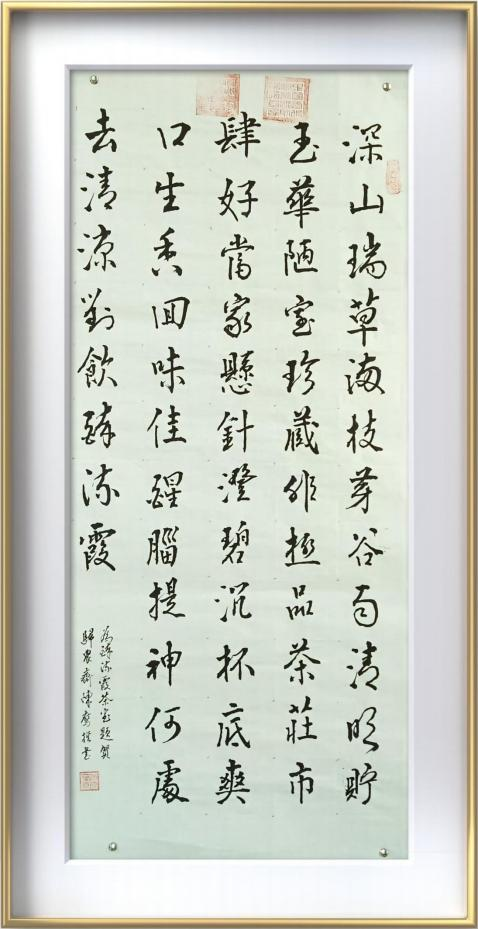 深山瑞草滿枝芽谷雨清明貯
玉華陋室珍藏非極品茶莊市
肆好當家懸針澄碧沉杯底爽
口生香回味佳醒腦提神何處
去清涼對飲醉流霞
為醉流霞茶室題賀
歸農齋陳書